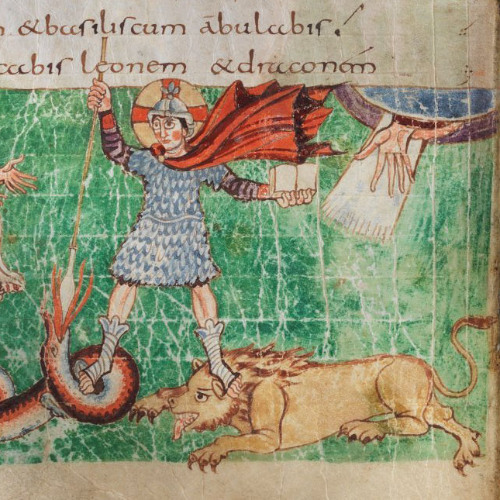 &basiliscum ābulabis;
cabis leonem &draconem